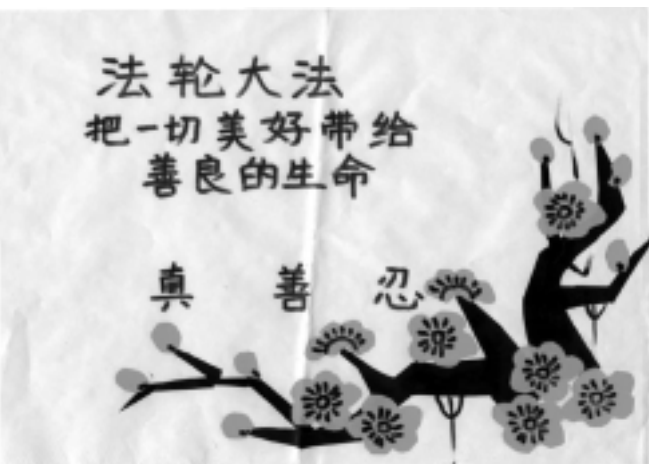 法轮大法
把一切美好带给
善良的生命
真 善 忍